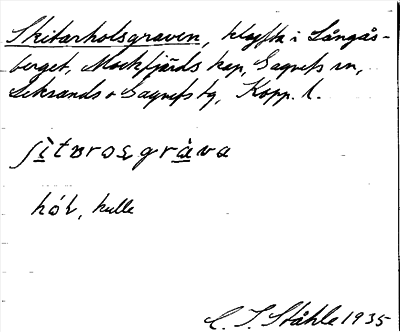 Skitarholsgraven, klyfta i Långås-
berget, Mockfjärds kap, Gagnefs sn,
Leksands o Gagnefs tg, Kopp. l.
hól, kulle
C. I. Ståhle 1935